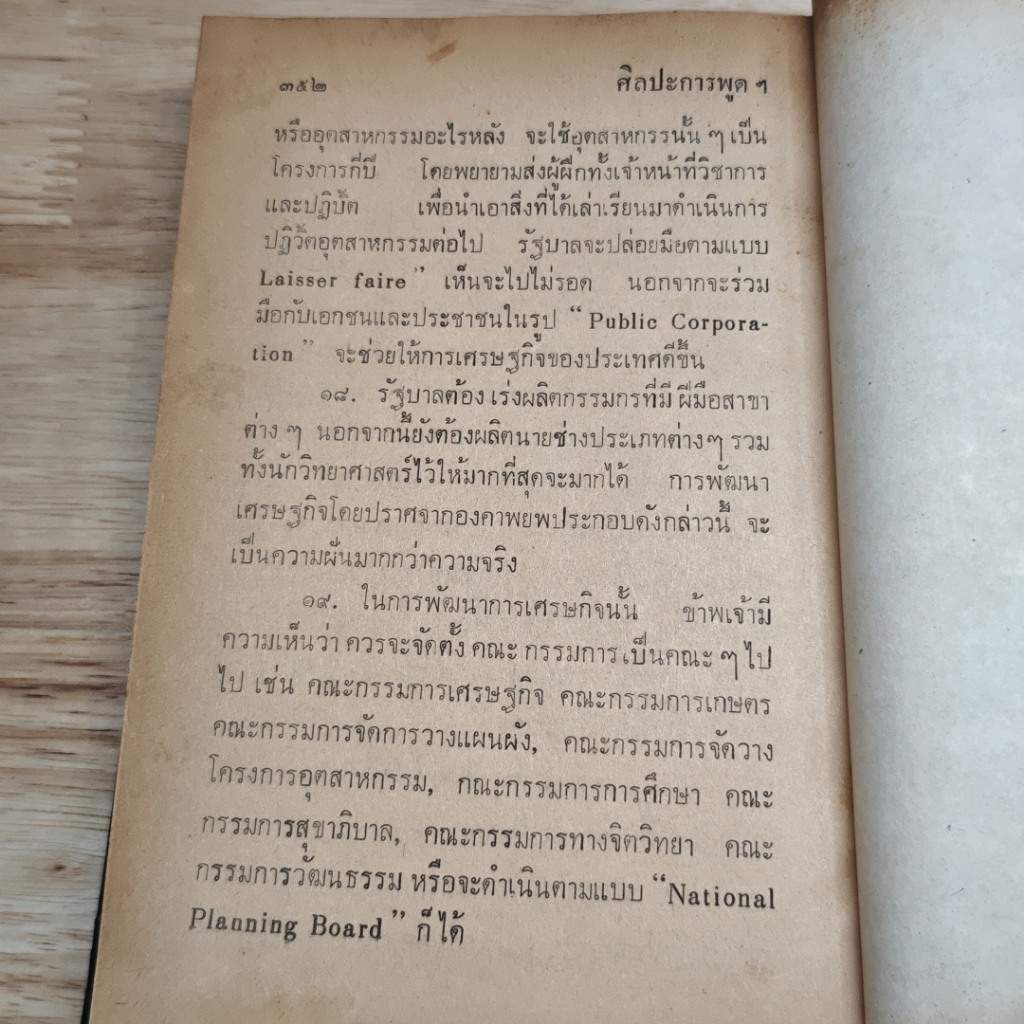 ๓๕๒ ศิลปะการพูด ๆ
หรืออุตสาหกรรมอะไรหลัง จะใช้อุตสาหกรรนั้น ๆ เป็น
โครงการกี่ปี โดยพยายามส่งผู้ฝึกทั้งเจ้าหน้าที่วิชาการ
และปฏิบัติ เพื่อนำเอาสิ่งที่ได้เล่าเรียนมาดำเนินการ
ปฏิวัติอุตสาหกรรมต่อไป รัฐบาลจะปล่อยมือตามแบบ
Laisser faire” เห็นจะไปไม่รอด นอกจากจะร่วม
มือกับเอกชนและประชาชนในรูป “Public Corpora-
tion” จะช่วยให้การเศรษฐกิจของประเทศดีขึ้น
๑๘. รัฐบาลต้อง เร่งผลิตกรรมกรที่มี ฝีมือสาขา
ต่าง ๆ นอกจากนี้ยังต้องผลิตนายช่างประเภทต่างๆ รวม
ทั้งนักวิทยาศาสตร์ไว้ให้มากที่สุดจะมากได้ การพัฒนา
เศรษฐกิจโดยปราศจากองคาพยพประกอบดังกล่าวนี้ จะ
เป็นความฝันมากกว่าความจริง
๑๙. ในการพัฒนาการเศรษกิจนั้น ข้าพเจ้ามี
ความเห็นว่า ควรจะจัดตั้ง คณะ กรรมการ เป็นคณะ ๆ ไป
ไป เช่น คณะกรรมการเศรษฐกิจ คณะกรรมการเกษตร
คณะกรรมการจัดการวางแผนผัง, คณะกรรมการจัดวาง
โครงการอุตสาหกรรม, กณะกรรมการการศึกษา คณะ
กรรมการสุขาภิบาล, คณะกรรมการทางจิตวิทยา คณะ
กรรมการวัฒนธรรม หรือจะดำเนินตามแบบ “National
Planning Board” ก็ได้